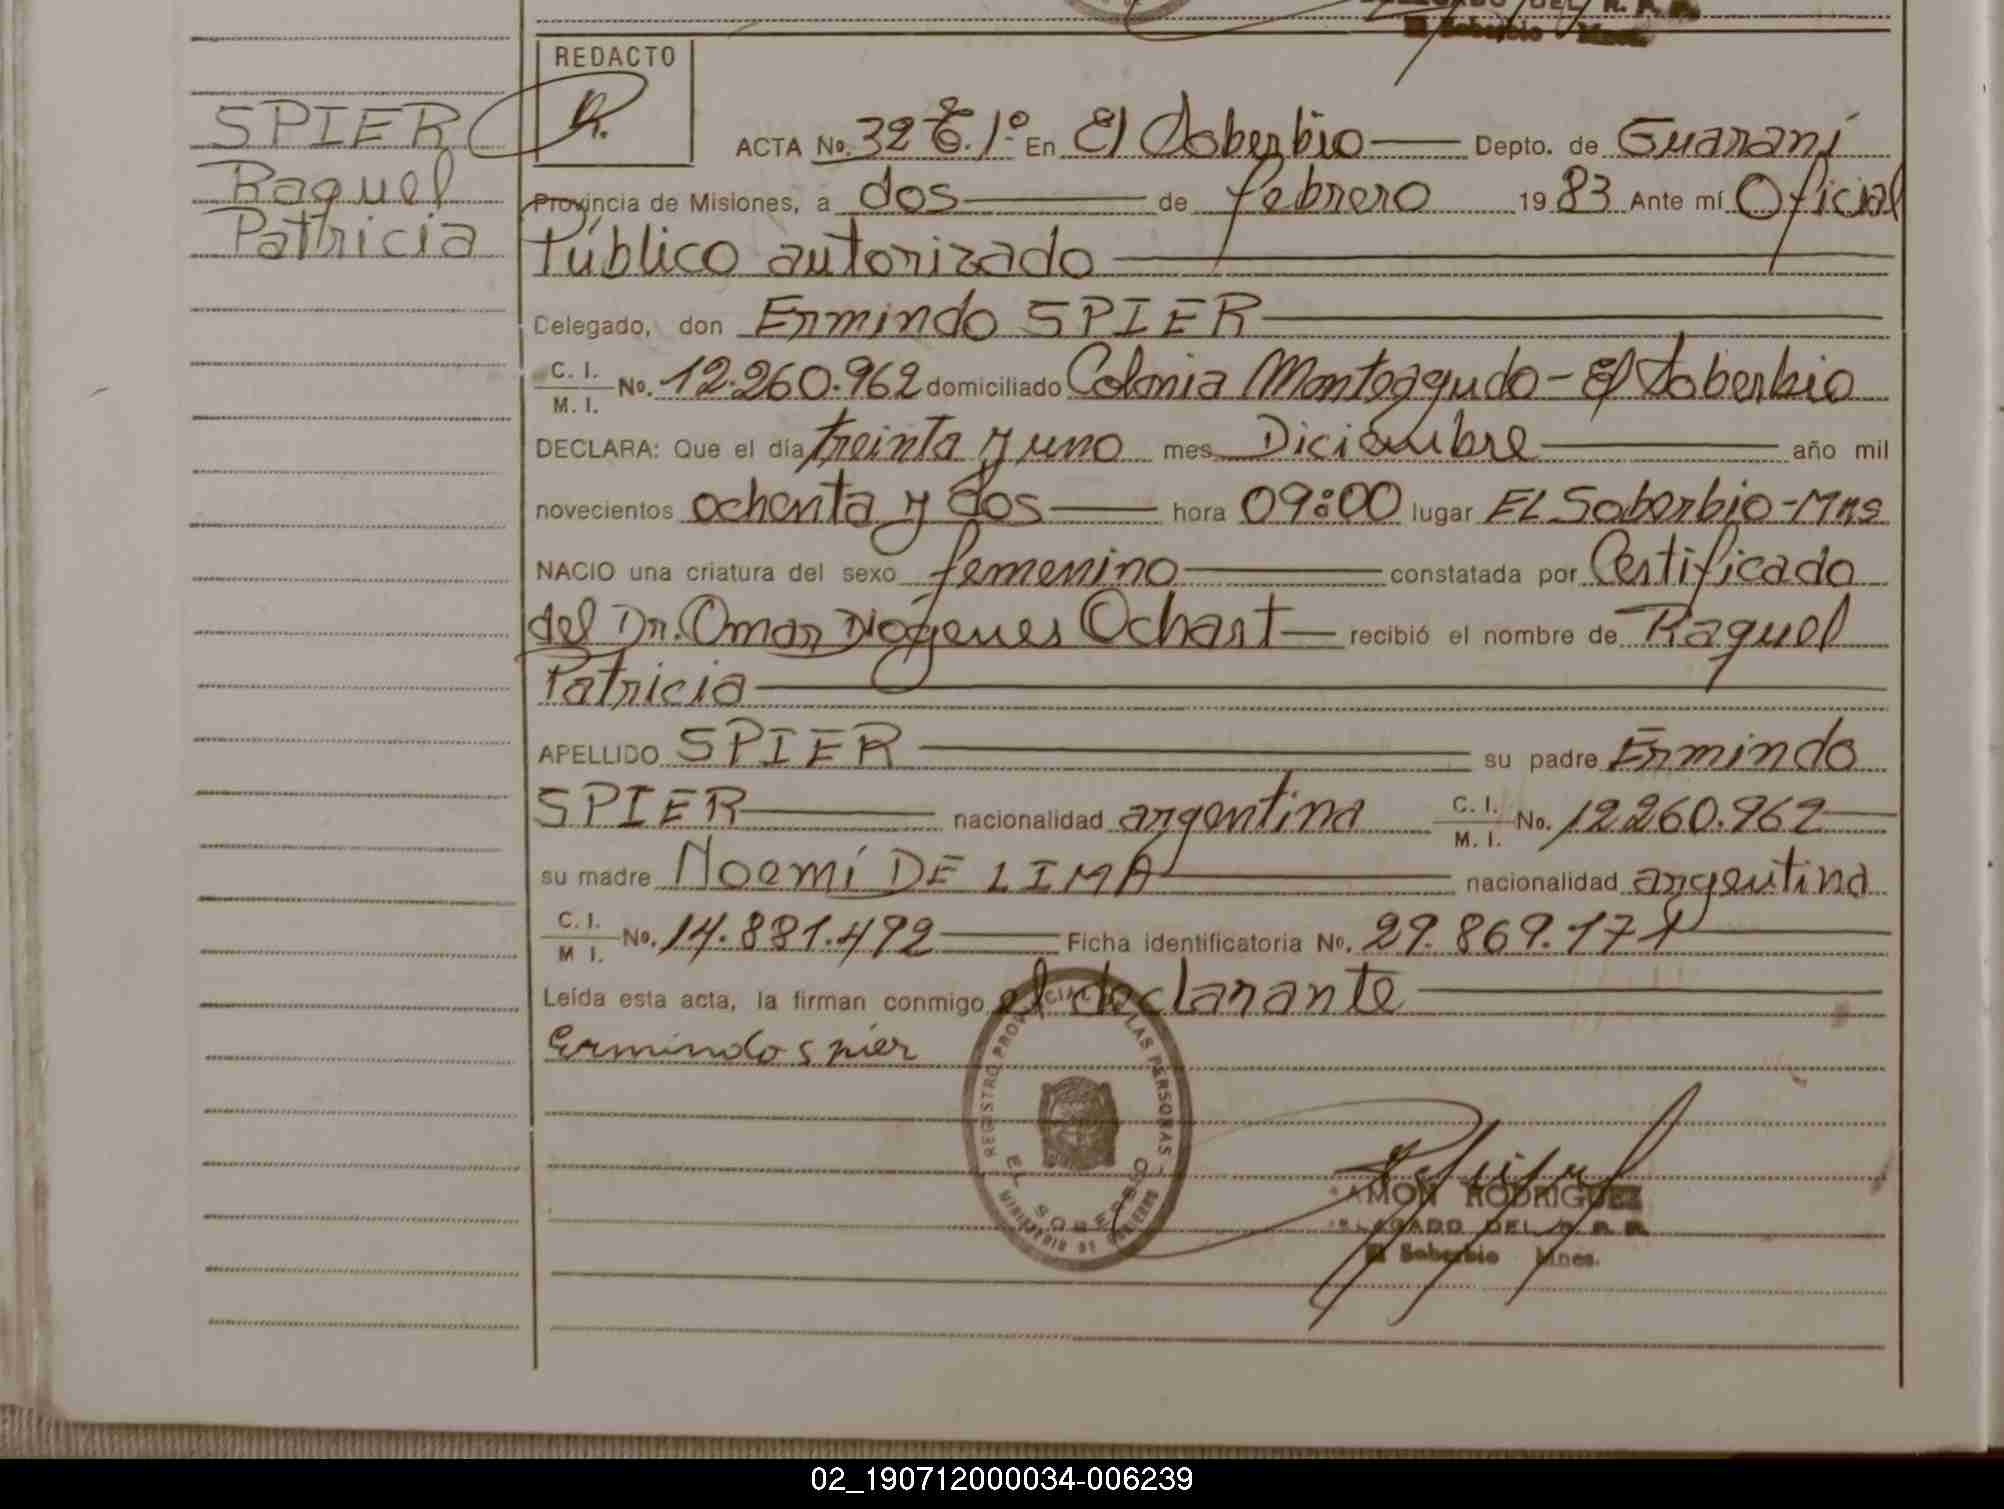 DELEGADO DEL R. P. P.
El Soberbio - Mnes.
REDACTO
R.
SPIER
Raquel
Patricia
ACTA No. 32 Tº. 1º En El Soberbio Depto. de Guaraní
Provincia de Misiones, a dos de febrero 1983 Ante mí Oficial
Público autorizado
Delegado, don Ermindo SPIER
C. I.
M. I. No. 12.260.962 domiciliado Colonia Monteagudo - El Soberbio
DECLARA: Que el día treinta y uno mes Diciembre año mil
novecientos ochenta y dos hora 09:00 lugar EL Soberbio-Mns
NACIO una criatura del sexo femenino constatada por Certificado
del Dr. Omar Diógenes Ochast recibió el nombre de Raquel
Patricia
APELLIDO SPIER su padre Ermindo
SPIER nacionalidad argentina C. I.
M. I. No. 12260.962
su madre Noemí DE LIMA nacionalidad argentina
C. I.
M I. No. 14.881.492 Ficha identificatoria No. 29.869.171
Leída esta acta, la firman conmigo el declarante
Ermindo spier
REGISTRO PROVINCIAL DE LAS PERSONAS
EL SOBERBIO
MINISTERIO DE GOBIERNO
RAMON RODRIGUEZ
DELEGADO DEL R. P. P.
El Soberbio Mnes.
02_190712000034-006239